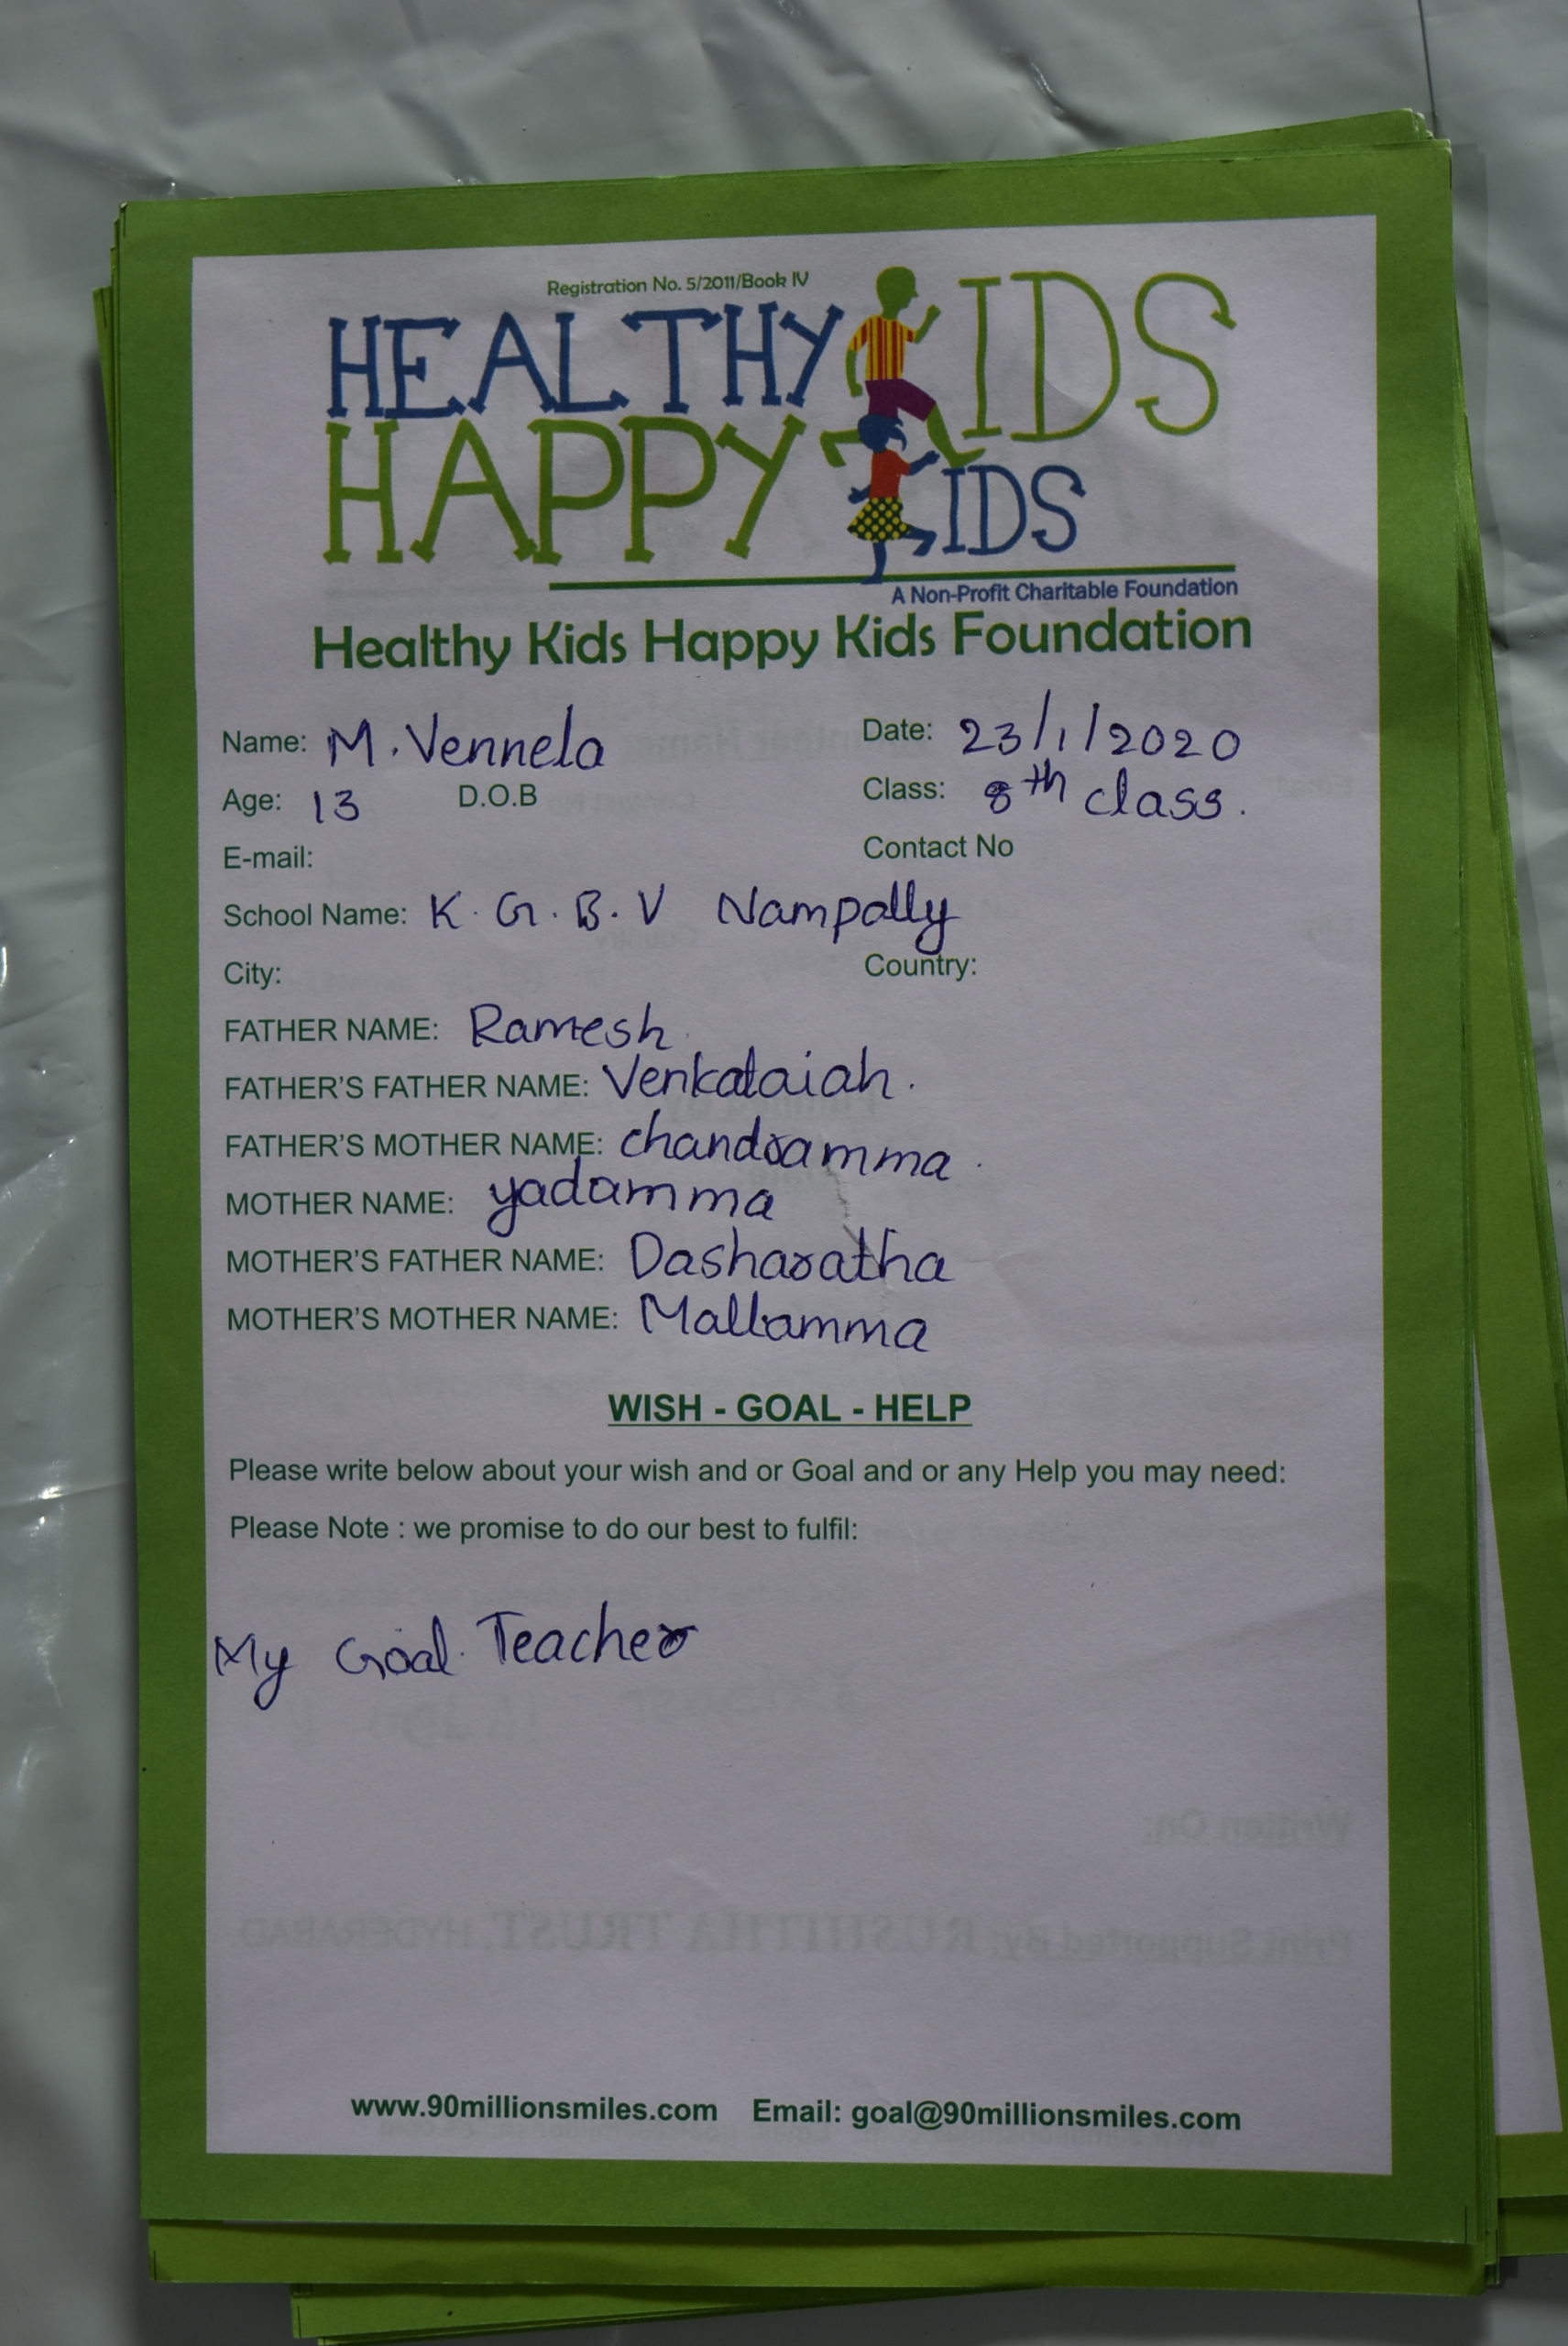 Registration No. 5/2011/Book IV
HEALTHY KIDS
HAPPY KIDS
A Non-Profit Charitable Foundation
Healthy Kids Happy Kids Foundation
Name: M. Vennela Date: 23/1/2020
Age: 13 D.O.B Class: 8th class.
E-mail: Contact No
School Name: K. G. B. V Nampally
City: Country:
FATHER NAME: Ramesh
FATHER'S FATHER NAME: Venkataiah.
FATHER'S MOTHER NAME: chandramma.
MOTHER NAME: yadamma
MOTHER'S FATHER NAME: Dasharatha
MOTHER'S MOTHER NAME: Mallamma
WISH - GOAL - HELP
Please write below about your wish and or Goal and or any Help you may need:
Please Note : we promise to do our best to fulfil:
My Goal. Teacher
Written On:
Print Supported By: RUSHITHA TRUST, HYDERABAD
www.90millionsmiles.com Email: goal@90millionsmiles.com